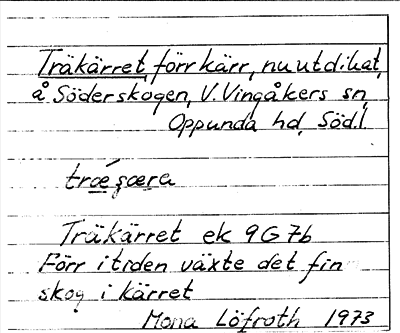 Träkärret, förr kärr, nu utdikat,
å Söderskogen, V. Vingåkers sn,
Oppunda hd, Södl.
træ´ʂæra
Träkärret ek 9G7b
Förr i tiden växte det fin
skog i kärret
Mona Löfroth 1973